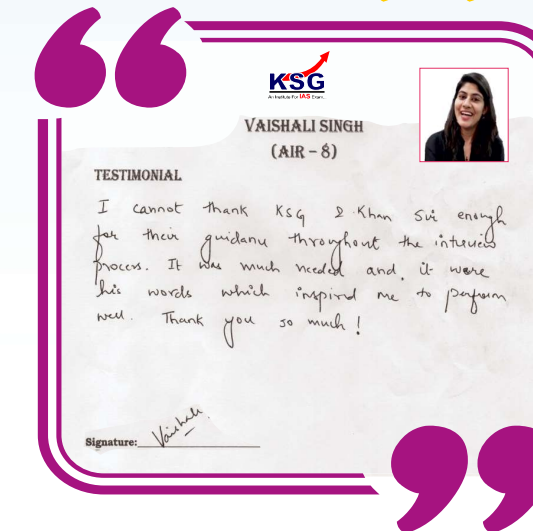 KSG
An Institute For IAS Exam
VAISHALI SINGH
(AIR – 8)
TESTIMONIAL
I cannot thank KSG & Khan Sir enough
for their guidance throughout the interview
process. It was much needed and, it were
his words which inspired me to perform
well. Thank you so much !
Signature: Vaishali